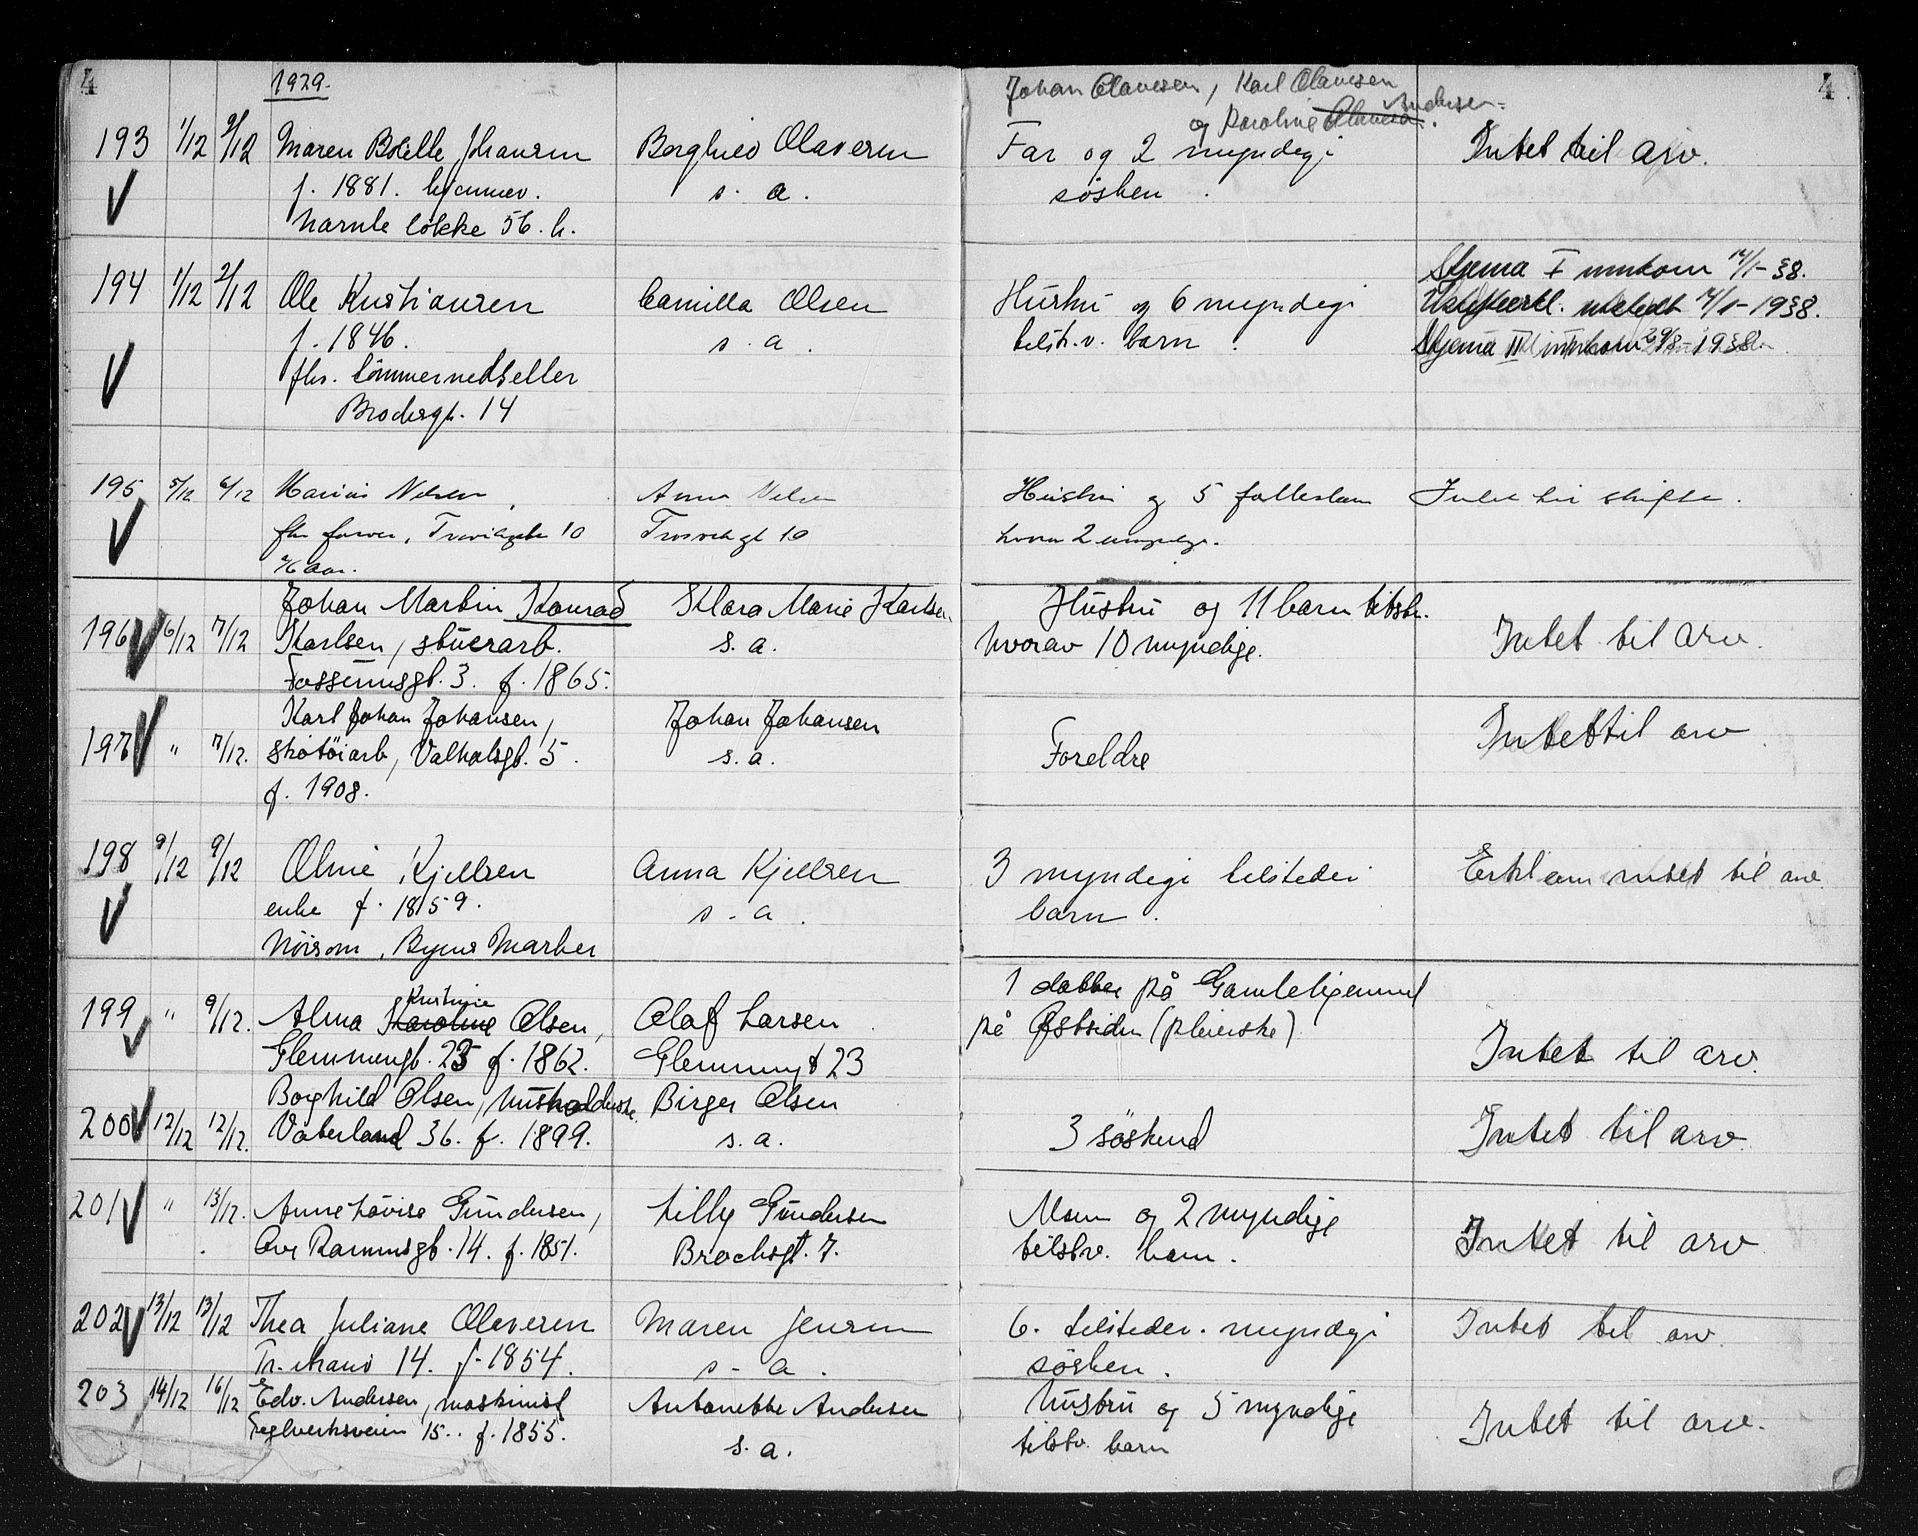 4
1929.
Johan Olavesen, Karl Olavesen
Andersen
og Karoline Olavesen.
4
193 1/12 2/12 Maren Bolette Johansen Borghild Olavesen Far og 2 myndige Intet til arv.
f. 1881. hjemmev. s. a. søsken.
Narnte løkke 56. h.
194 1/12 2/12 Ole Kristiansen Camilla Olsen Hustru og 6 myndige Skjema I innkom 14/1-38.
f. 1846. s. a. tilst.v. barn. utstedt 14/1-1938.
fhv. tømmernedseller Skjema III innkom 1938
Brochsgt. 14
195 5/12 6/12 Marius Nelsen Anna Nelsen Hustru og 5 fellesbarn Intet til skifte.
fhv. farver, Trosvikgt 10 Trosvikgt 10 hvorav 2 umyndige.
Johan Martin Konrad Klara Marie Karlsen Hustru og 11 barn tilstr.
196 6/12 7/12 Karlsen, stuerarb. s. a. hvorav 10 myndige. Intet til arv.
Fossumsgt. 3. f. 1865.
Karl Johan Johansen, Johan Johansen Intet til arv.
197 " 7/12. skotöiarb, Valhalsgt. 5. s. a. Foreldre
f. 1908.
198 9/12 9/12 Oline Kjellsen Anna Kjellsen 3 myndige tilstedev. Erkl om intet til arv
enke f. 1859. s. a. barn.
Nöisom, Byens Marker
1 datter på Gamlehjemmet
Kristine
199 " 9/12. Alma Karoline Olsen, Olaf Larsen på Østsiden (pleierske)
Glemmengt. 23 f. 1862. Glemmengt 23 Intet til arv.
Borghild Olsen, husholderske Birger Olsen
200 12/12 12/12. Vaterland 36. f. 1899. s. a. 3 söskend Intet til arv.
201 " 13/12. Anne Lovise Gundersen, Lilly Gundersen Mann og 2 myndige
Ove Rammsgt. 14. f. 1851. Brochsgt. 7. tilstv. barn. Intet til arv
202 13/12 13/12 Thea Juliane Olavesen Maren Jensen 6. tilstedev. myndige Intet til arv.
Tr. 14. f. 1854. s. a. søsken.
203 14/12 16/12 Edv. Andersen, maskinist Antonette Andersen Hustru og 5 myndige
Teglverksveien 15. f. 1855. s. a. tilstv. barn Intet til arv.